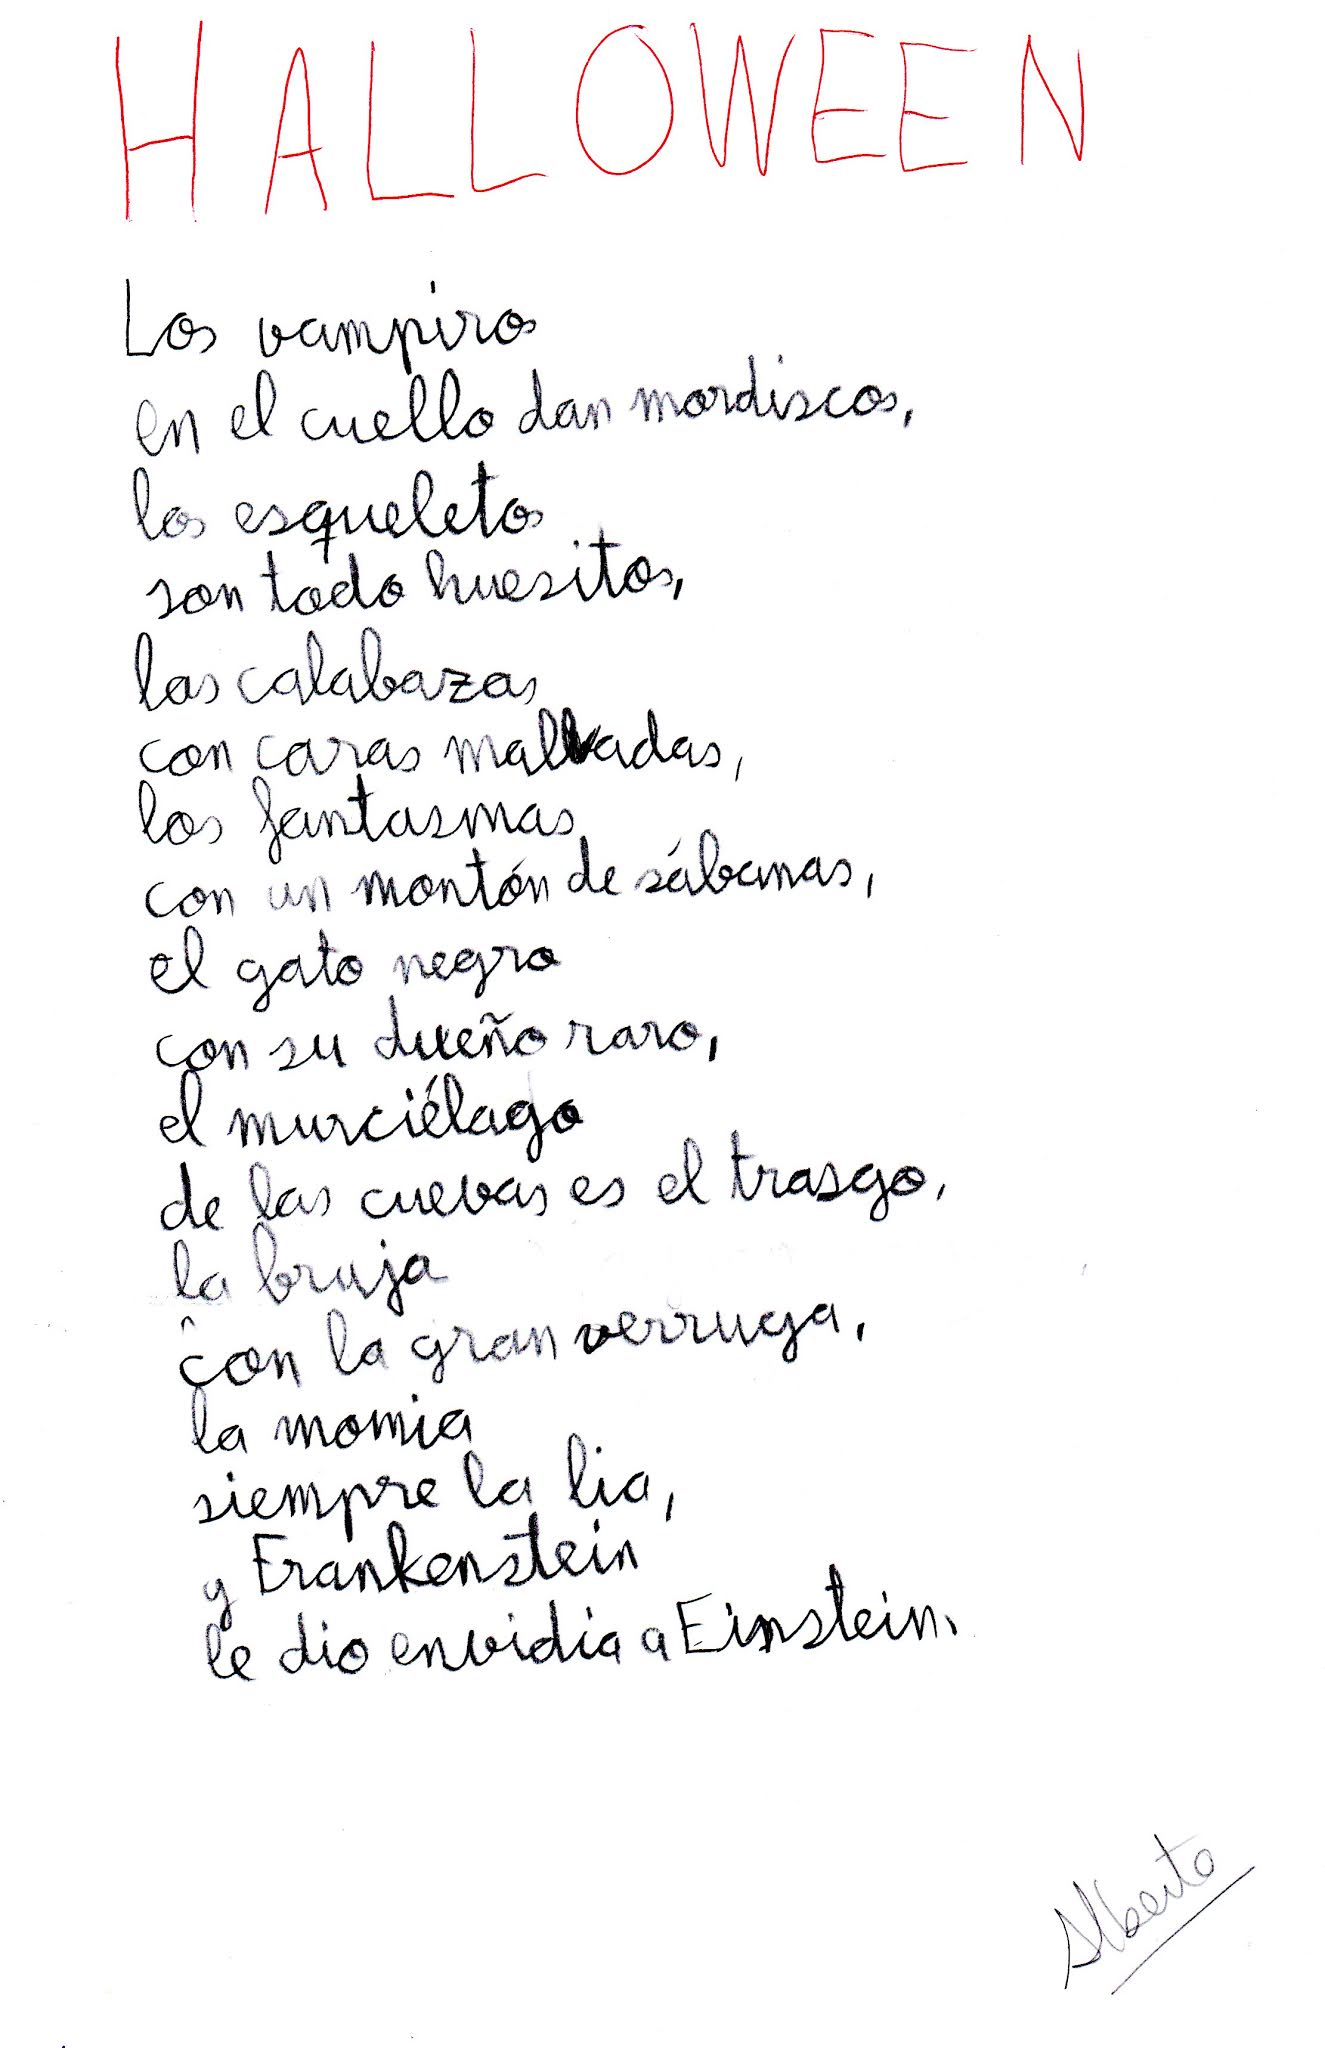 HALLOWEEN
Los vampiros
en el cuello dan mordiscos,
los esqueletos
son todo huesitos,
las calabazas
con caras malvadas,
los fantasmas
con un montón de sábanas,
el gato negro
con su dueño raro,
el murciélago
de las cuevas es el trasgo,
la bruja
con la gran verruga,
la momia
siempre la lia,
y Frankenstein
le dio envidia a Einstein.
Alberto